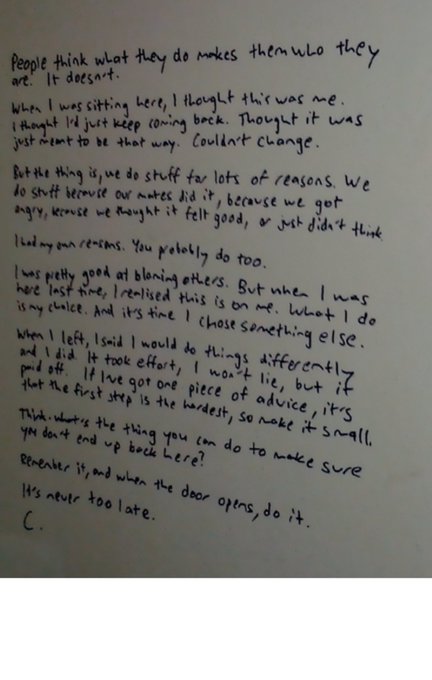 People think what they do makes them who they
are. It doesn't.
When I was sitting here, I thought this was me.
I thought I'd just keep coming back. Thought it was
just meant to be that way. Couldn't change.
But the thing is, we do stuff for lots of reasons. We
do stuff because our mates did it, because we got
angry, because we thought it felt good, or just didn't think.
I had my own reasons. You probably do too.
I was pretty good at blaming others. But when I was
here last time, I realised this is on me. What I do
is my choice. And it's time I chose something else.
When I left, I said I would do things differently
and I did. It took effort, I won't lie, but it
paid off. If I've got one piece of advice, it's
that the first step is the hardest, so make it small.
Think. What's the thing you can do to make sure
you don't end up back here?
Remember it, and when the door opens, do it.
It's never too late.
C.